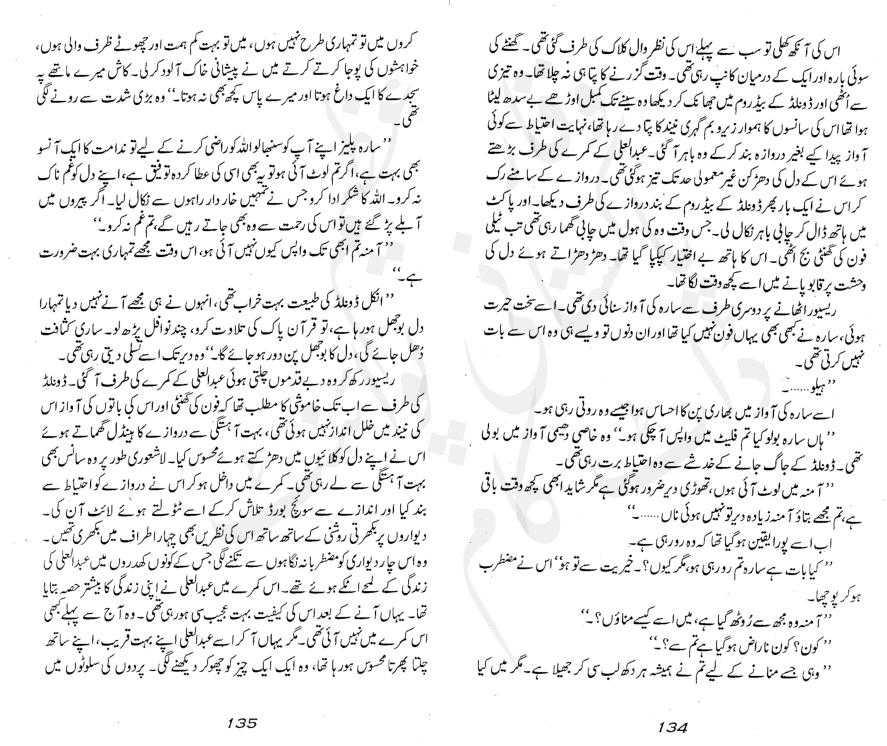 اس کی آنکھ کھلی تو سب سے پہلے اس کی نظر وال کلاک کی طرف گئی تھی۔ گھنٹے کی
سوئی بارہ اور ایک کے درمیان کانپ رہی تھی۔ وقت گزرنے کا پتا ہی نہ چلا تھا۔ وہ تیزی
سے اُٹھی اور ڈونلڈ کے بیڈ روم میں جھانک کر دیکھا وہ سینے تک کمبل اوڑھے بے سدھ لیٹا
ہوا تھا اس کی سانسوں کا ہموار زیر و بم گہری نیند کا پتا دے رہا تھا، نہایت احتیاط سے کوئی
آواز پیدا کیے بغیر دروازہ بند کر کے وہ باہر آ گئی۔ عبدالعلی کے کمرے کی طرف بڑھتے
ہوئے اس کے دل کی دھڑکن غیر معمولی حد تک تیز ہو گئی تھی۔ دروازے کے سامنے رک
کر اس نے ایک بار پھر ڈونلڈ کے بیڈ روم کے بند دروازے کی طرف دیکھا۔ اور پاکٹ
میں ہاتھ ڈال کر چابی باہر نکال لی۔ جس وقت وہ کی ہول میں چابی گھما رہی تھی تب ٹیلی
فون کی گھنٹی بج اٹھی۔ اس کا ہاتھ بے اختیار کپکپا گیا تھا۔ دھڑ دھڑاتے ہوئے دل کی
وحشت پر قابو پانے میں اسے کچھ وقت لگا تھا۔
ریسیور اٹھانے پر دوسری طرف سے سارہ کی آواز سنائی دی تھی۔ اسے سخت حیرت
ہوئی، سارہ نے کبھی بھی یہاں فون نہیں کیا تھا اور ان دنوں تو ویسے ہی وہ اس سے بات
نہیں کرتی تھی۔
’’ہیلو……۔
اسے سارہ کی آواز میں بھاری پن کا احساس ہوا جیسے وہ روتی رہی ہو۔
’’ہاں سارہ بولو کیا تم فلیٹ میں واپس آ چکی ہو۔‘‘ وہ خاصی دھیمی آواز میں بولی
تھی۔ ڈونلڈ کے جاگ جانے کے خدشے سے وہ احتیاط برت رہی تھی۔
’’آمنہ میں لوٹ آئی ہوں، تھوڑی دیر ضرور ہو گئی ہے مگر شاید ابھی کچھ وقت باقی
ہے، تم مجھے بتاؤ آمنہ زیادہ دیر تو نہیں ہوئی ناں……۔‘‘
اب اسے پورا یقین ہو گیا تھا کہ وہ رو رہی ہے۔
’’کیا بات ہے سارہ تم رو رہی ہو، مگر کیوں؟۔ خیریت سے تو ہو‘‘ اس نے مضطرب
ہو کر پوچھا۔
’’آمنہ وہ مجھ سے رُوٹھ گیا ہے، میں اسے کیسے مناؤں؟۔‘‘
’’کون؟ کون ناراض ہو گیا ہے تم سے؟۔‘‘
’’وہی جسے منانے کے لیے تم نے ہمیشہ ہر دکھ لب سی کر جھیلا ہے۔ مگر میں کیا
134
کروں میں تو تمہاری طرح نہیں ہوں، میں تو بہت کم ہمت اور چھوٹے ظرف والی ہوں،
خواہشوں کی پوجا کرتے کرتے میں نے پیشانی خاک آلود کر لی۔ کاش میرے ماتھے پہ
سجدے کا ایک داغ ہوتا اور میرے پاس کچھ بھی نہ ہوتا۔‘‘ وہ بڑی شدت سے رونے لگی
تھی۔
’’سارہ پلیز اپنے آپ کو سنبھالو اللہ کو راضی کرنے کے لیے تو ندامت کا ایک آنسو
بھی بہت ہے، اگر تم لوٹ آئی ہو تو یہ بھی اسی کی عطا کردہ توفیق ہے، اپنے دل کو غم ناک
نہ کرو۔ اللہ کا شکر ادا کرو جس نے تمہیں خار دار راہوں سے نکال لیا۔ اگر پیروں میں
آبلے پڑ گئے ہیں تو اس کی رحمت سے وہ بھی جاتے رہیں گے، تم غم نہ کرو۔‘‘
’’آمنہ تم ابھی تک واپس کیوں نہیں آئی ہو، اس وقت مجھے تمہاری بہت ضرورت
ہے۔‘‘
’’انکل ڈونلڈ کی طبیعت بہت خراب تھی، انہوں نے ہی مجھے آنے نہیں دیا تمہارا
دل بوجھل ہو رہا ہے، تو قرآن پاک کی تلاوت کرو، چند نوافل پڑھ لو۔ ساری کثافت
دُھل جائے گی، دل کا بوجھل پن دور ہو جائے گا۔‘‘ وہ دیر تک اسے تسلی دیتی رہی تھی۔
ریسیور رکھ کر وہ دبے قدموں چلتی ہوئی عبدالعلی کے کمرے کی طرف آ گئی۔ ڈونلڈ
کی طرف سے اب تک خاموشی کا مطلب تھا کہ فون کی گھنٹی اور اس کی باتوں کی آواز اس
کی نیند میں خلل انداز نہیں ہوئی تھی، بہت آہستگی سے دروازے کا ہینڈل گھماتے ہوئے
اس نے اپنے دل کو کلائیوں میں دھڑکتے ہوئے محسوس کیا۔ لاشعوری طور پر وہ سانس بھی
بہت آہستگی سے لے رہی تھی۔ کمرے میں داخل ہو کر اس نے دروازے کو احتیاط سے
بند کیا اور اندازے سے سوئچ بورڈ تلاش کر کے اسے ٹٹولتے ہوئے لائٹ آن کی۔
دیواروں پر بکھرتی روشنی کے ساتھ ساتھ اس کی نظریں بھی چہار اطراف میں بکھری تھیں۔
وہ اس چار دیواری کو مضطربانہ نگاہوں سے تکنے لگی جس کے کونوں کھدروں میں عبدالعلی کی
زندگی کے لمحے اٹکے ہوئے تھے۔ اس کمرے میں عبدالعلی نے اپنی زندگی کا بیشتر حصہ بتایا
تھا۔ یہاں آنے کے بعد اس کی کیفیت بہت عجیب سی ہو رہی تھی۔ وہ آج سے پہلے کبھی
اس کمرے میں نہیں آئی تھی۔ مگر یہاں آ کر اسے عبدالعلی اپنے بہت قریب، اپنے ساتھ
چلتا پھرتا محسوس ہو رہا تھا، وہ ایک ایک چیز کو چھو کر دیکھنے لگی۔ پردوں کی سلوٹوں میں
135